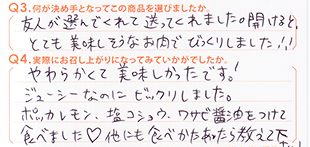 Q3.何が決め手となってこの商品を選びましたか。
友人が選んでくれて送ってくれました開けると、
とても美味しそうなお肉でびっくりしました!!
Q4.実際にお召し上がりになってみていかがでしたか。
やわらかくて美味しかったです!
ジューシーなのにビックリしました。
ポッカレモン、塩コショウ、ワサビ醤油をつけて
食べました♡他にも食べかたあったら教えて下